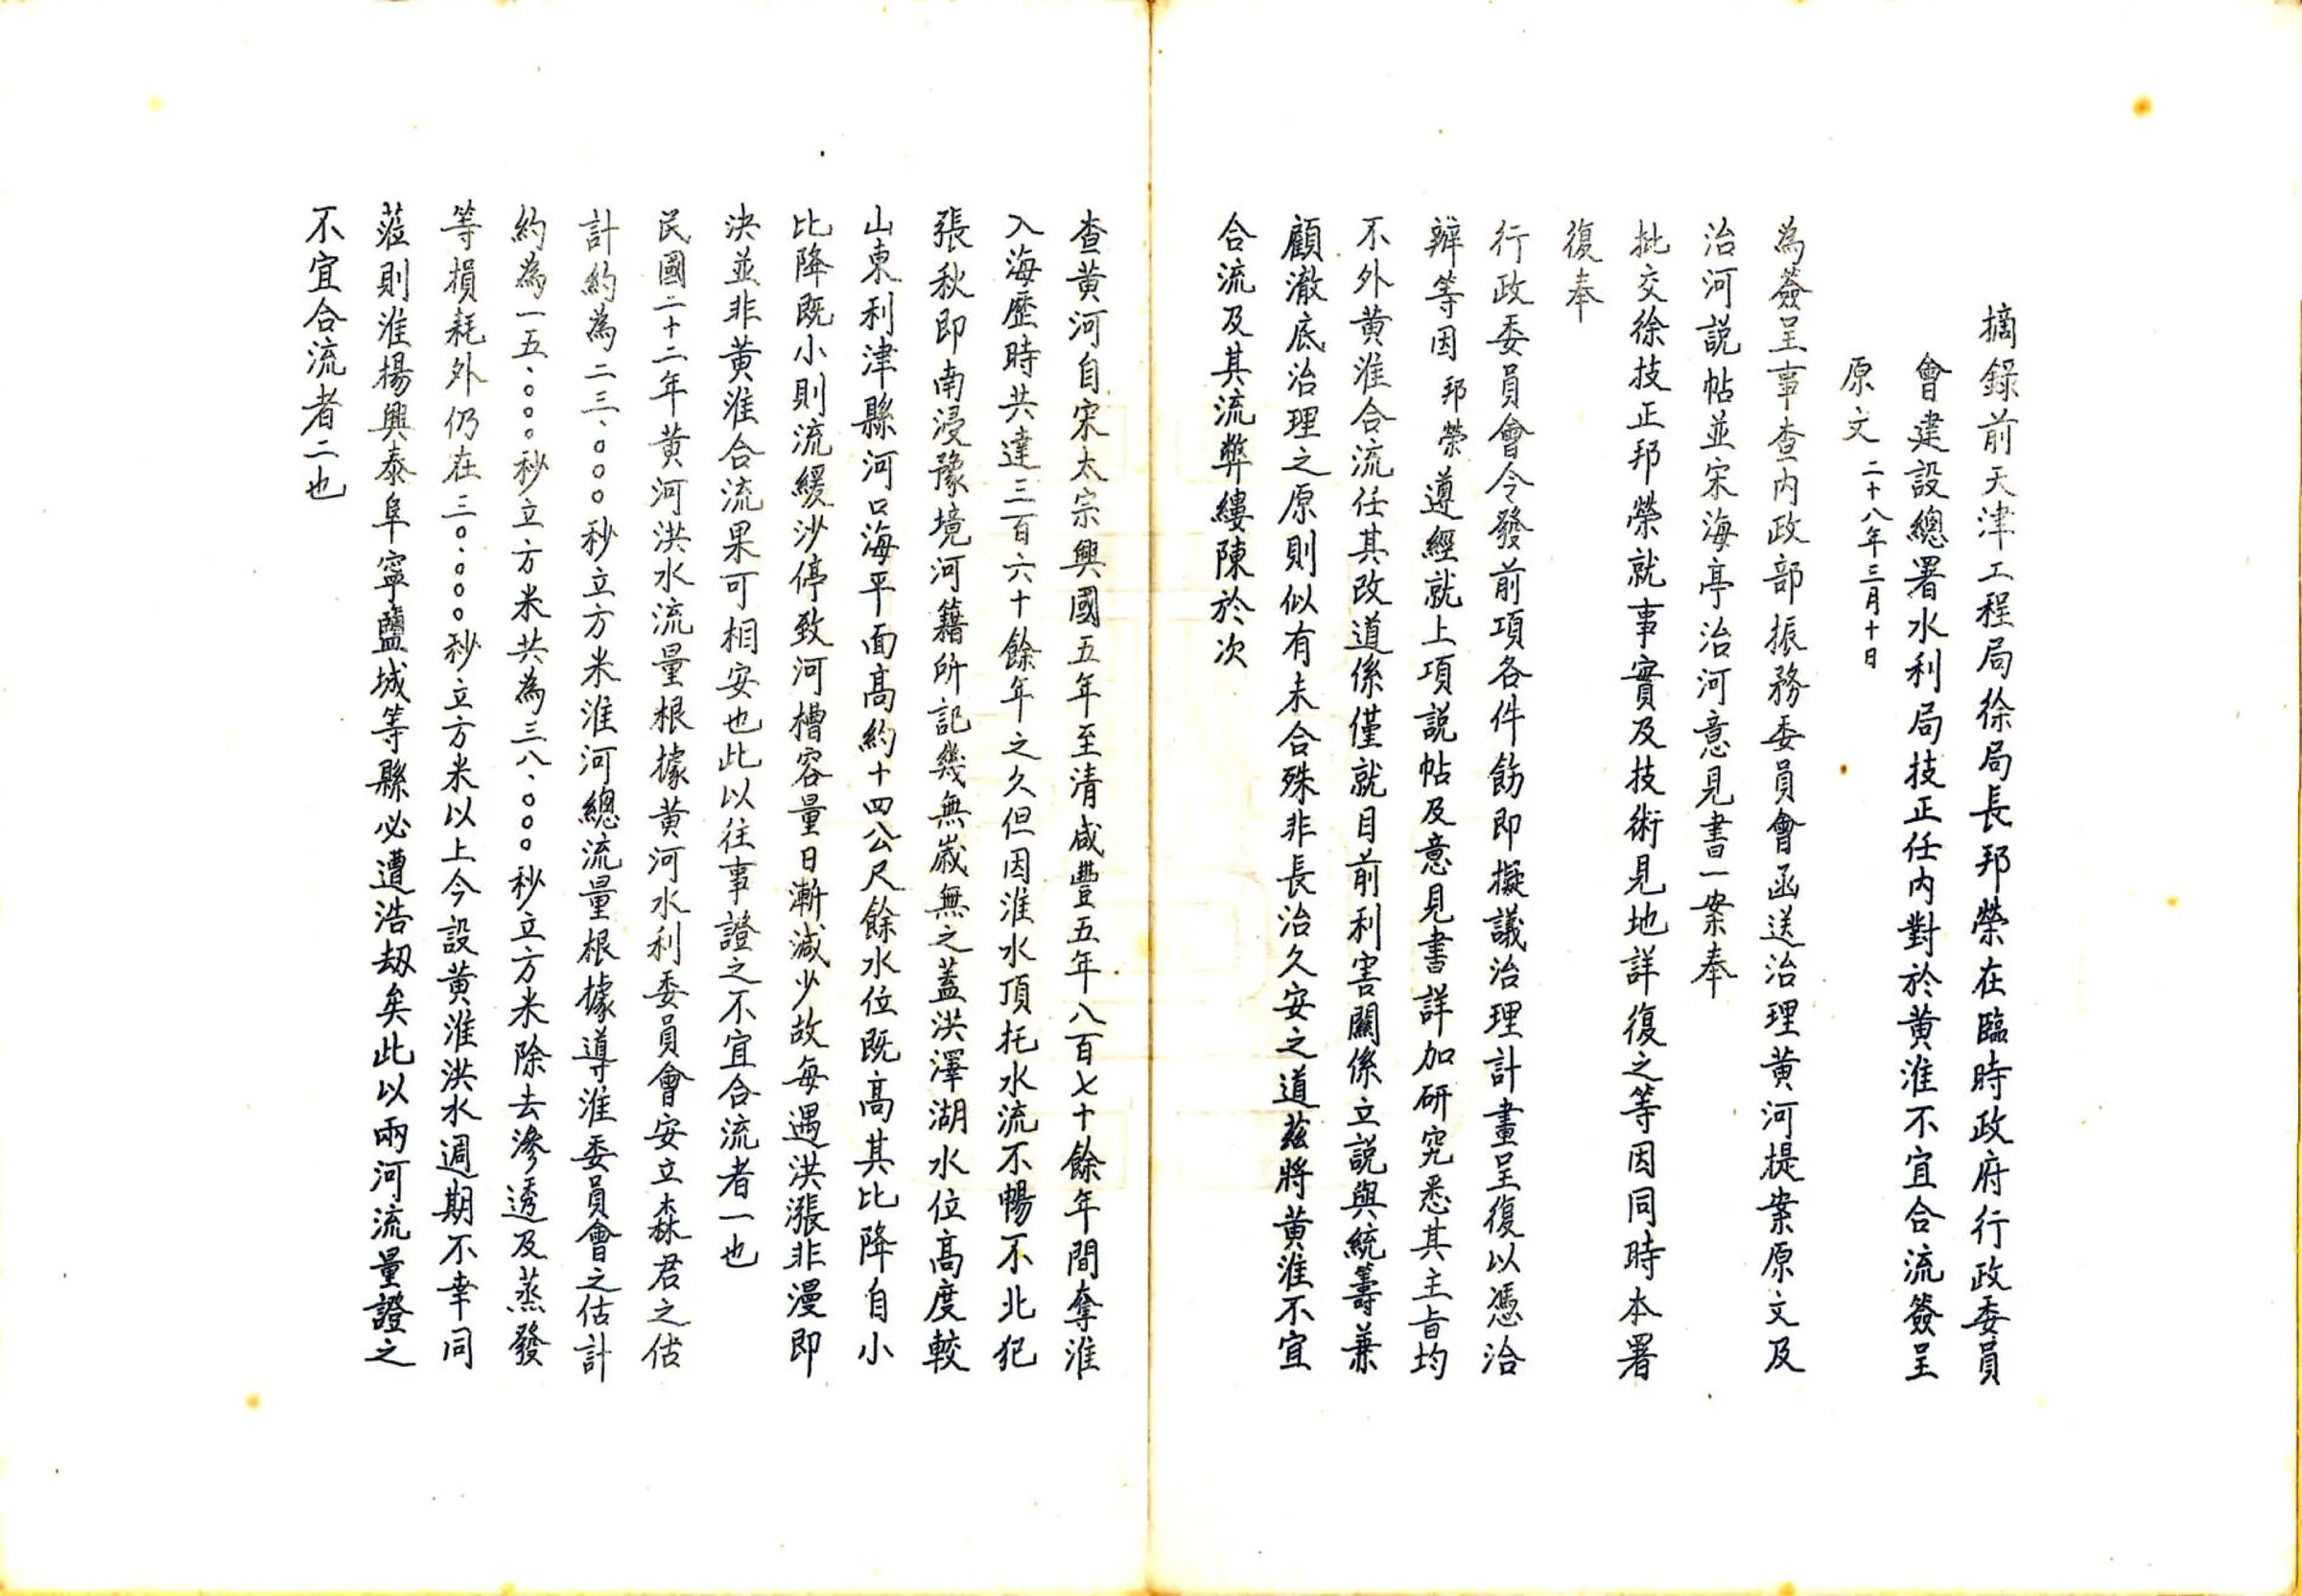 摘錄前天津工程局徐局長邦榮在臨時政府行政委員
會建設總署水利局技正任內對於黃淮不宜合流簽呈
原文 二十八年三月十日
為簽呈事查內政部振務委員會函送治理黃河提案原文及
治河說帖並宋海亭治河意見書一案奉
批交徐技正邦榮就事實及技術見地詳復之等因同時本署
復奉
行政委員會令發前項各件飭即擬議治理計畫呈復以憑洽
辦等因邦榮遵經就上項說帖及意見書詳加研究悉其主旨均
不外黃淮合流任其改道係僅就目前利害關係立說與統籌兼
顧澈底治理之原則似有未合殊非長治久安之道茲將黃淮不宜
合流及其流弊縷陳於次
查黃河自宋太宗興國五年至清咸豐五年八百七十餘年間奪淮
入海歷時共達三百六十餘年之久但因淮水頂托水流不暢不北犯
張秋即南浸豫境河籍所記幾無歲無之蓋洪澤湖水位高度較
山東利津縣河口海平面高約十四公尺餘水位既高其比降自小
比降既小則流緩沙停致河槽容量日漸減少故每遇洪漲非漫即
決並非黃淮合流果可相安也此以往事證之不宜合流者一也
民國二十二年黃河洪水流量根據黃河水利委員會安立森君之估
計約為二三、○○○秒立方米淮河總流量根據導淮委員會之估計
約為一五、○○○秒立方米共為三八、○○○秒立方米除去滲透及蒸發
等損耗外仍在三○、○○○秒立方米以上今設黃淮洪水週期不幸同
蒞則淮揚興泰阜寧鹽城等縣必遭浩劫矣此以兩河流量證之
不宜合流者二也